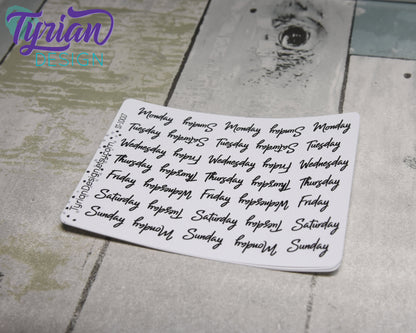 Tyrian
DESIGN
Monday Sunday Monday Sunday Monday
Tuesday Saturday Tuesday Saturday Tuesday
Wednesday Friday Wednesday Friday Wednesday
Thursday Thursday Thursday Thursday Thursday
Friday Wednesday Friday Wednesday Friday
Saturday Tuesday Saturday Tuesday Saturday
Sunday Monday Sunday Monday Sunday
TyrianDesign.etsy.com